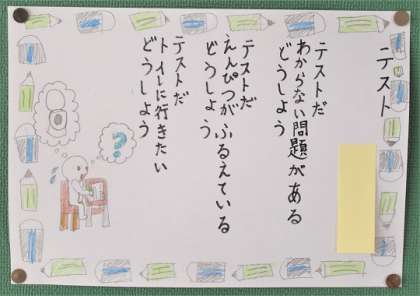 テスト
テストだ
わからない問題がある
どうしよう
テストだ
えんぴつがふるえている
どうしよう
テストだ
トイレに行きたい
どうしよう
?